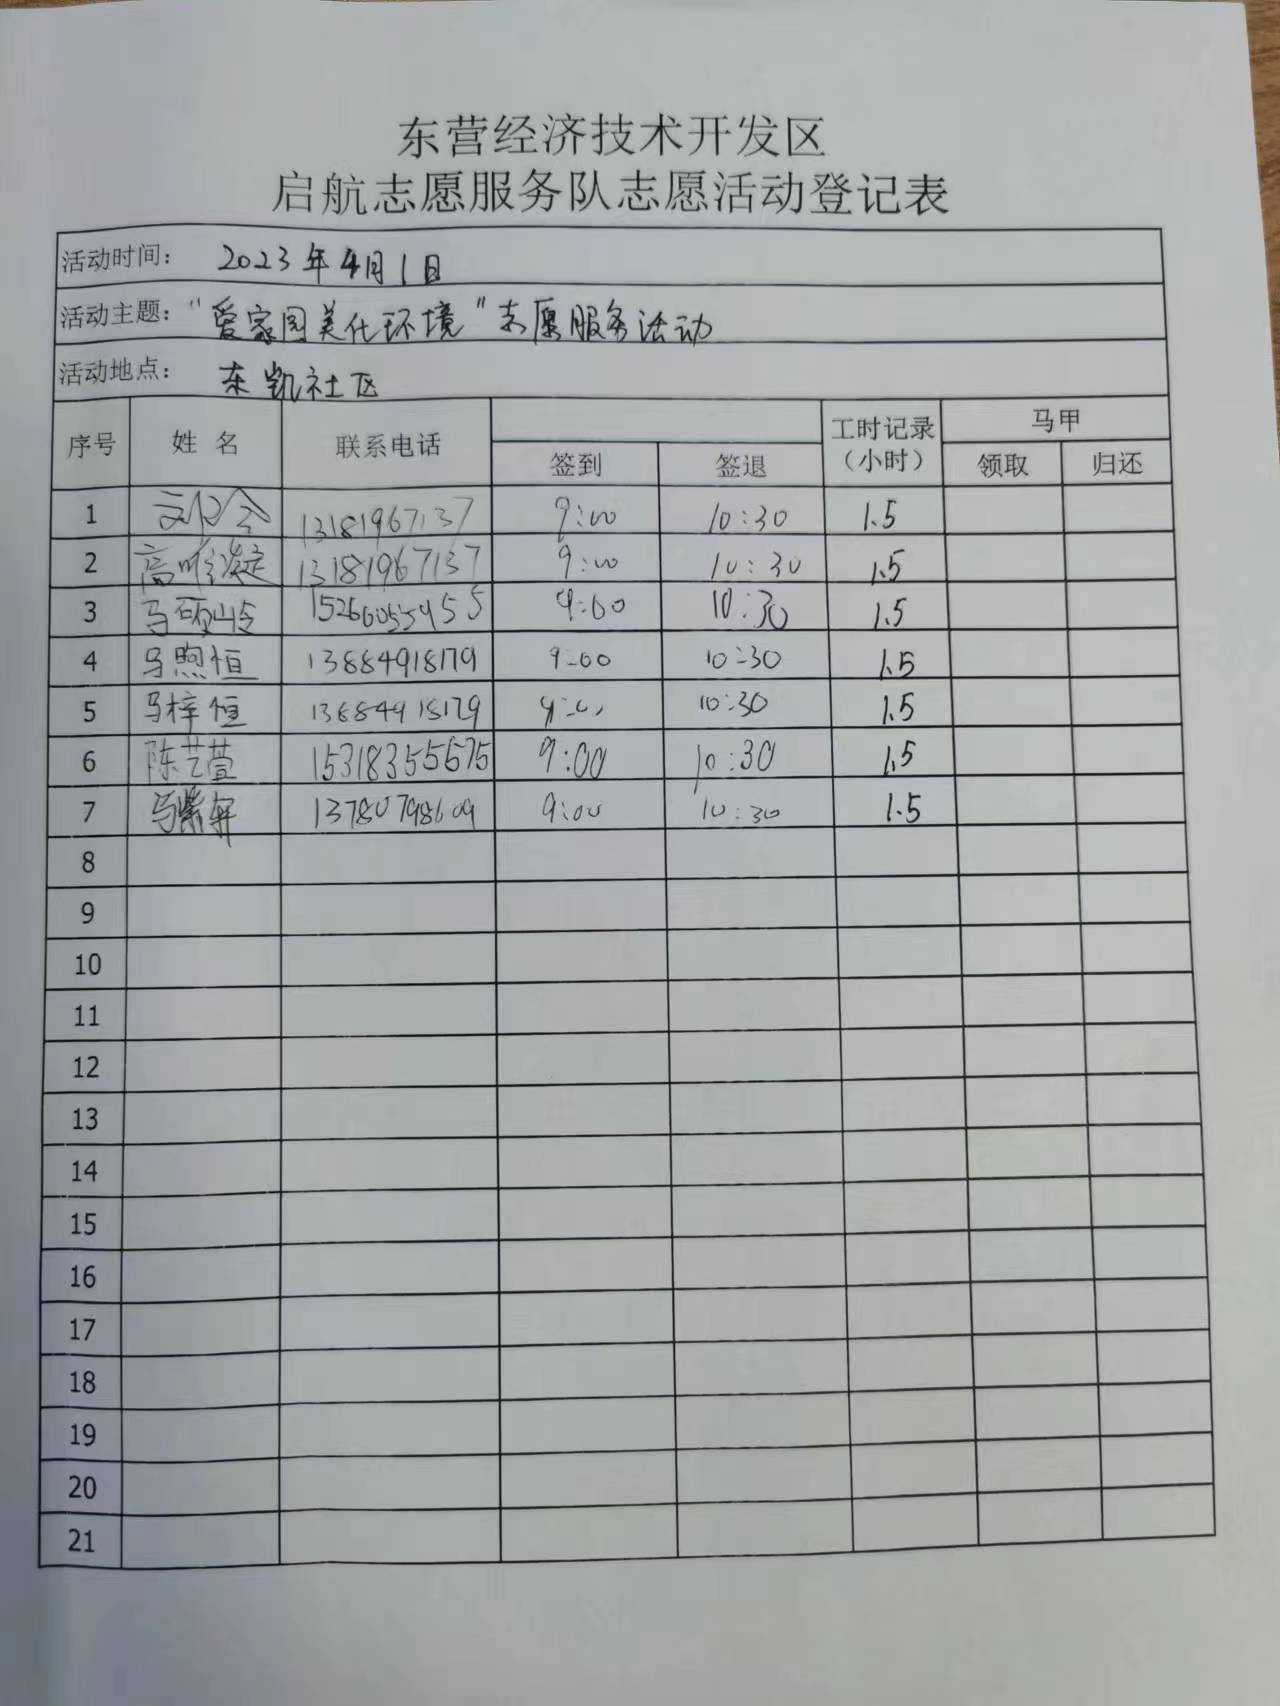 东营经济技术开发区
启航志愿服务队志愿活动登记表
活动时间： 2023年4月1日
活动主题："爱家园美化环境"志愿服务活动
活动地点： 东凯社区
序号 姓 名 联系电话 签到 签退 工时记录（小时） 马甲 领取 归还
1 13181967137 9:00 10:30 1.5
2 高 13181967137 9:00 10:30 1.5
3 马硕岭 15266055455 9:00 10:30 1.5
4 马煦恒 13884918179 9-00 10:30 1.5
5 马梓恒 13884918179 10:30 1.5
6 陈艺萱 15318355575 9:00 10:30 1.5
7 马紫轩 13780798609 9:00 10:30 1.5
8
9
10
11
12
13
14
15
16
17
18
19
20
21